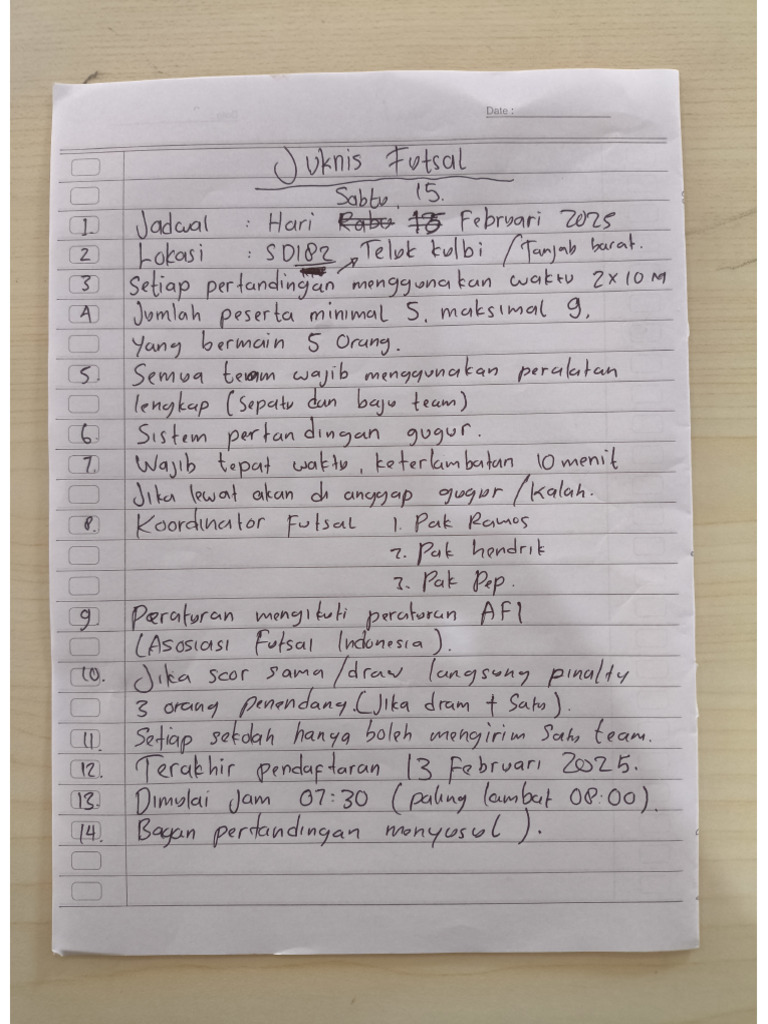 Date :
Juknis Futsal
Sabtu, 15.
1. Jadwal : Hari Rabu 15 Februari 2025
2 Lokasi : SD182 Teluk kulbi / Tanjab barat.
3 Setiap pertandingan menggunakan waktu 2 x 10 M
4 Jumlah peserta minimal 5, maksimal 9,
yang bermain 5 Orang.
5. Semua team wajib menggunakan peralatan
lengkap (sepatu dan baju team)
6. Sistem pertandingan gugur.
7. Wajib tepat waktu, keterlambatan 10 menit
Jika lewat akan di anggap gugur / Kalah.
8. Koordinator Futsal 1. Pak Ramos
2. Pak hendrik
3. Pak Pep.
9 Peraturan mengikuti peraturan AFI
(Asosiasi Futsal Indonesia).
10. Jika scor sama / draw langsung pinalty
3 orang penendang. (Jika dram + Satu).
11. Setiap sekolah hanya boleh mengirim satu team.
12. Terakhir pendaftaran 13 Februari 2025.
13. Dimulai Jam 07:30 (paling lambat 08:00).
14. Bagan pertandingan monyusul ).